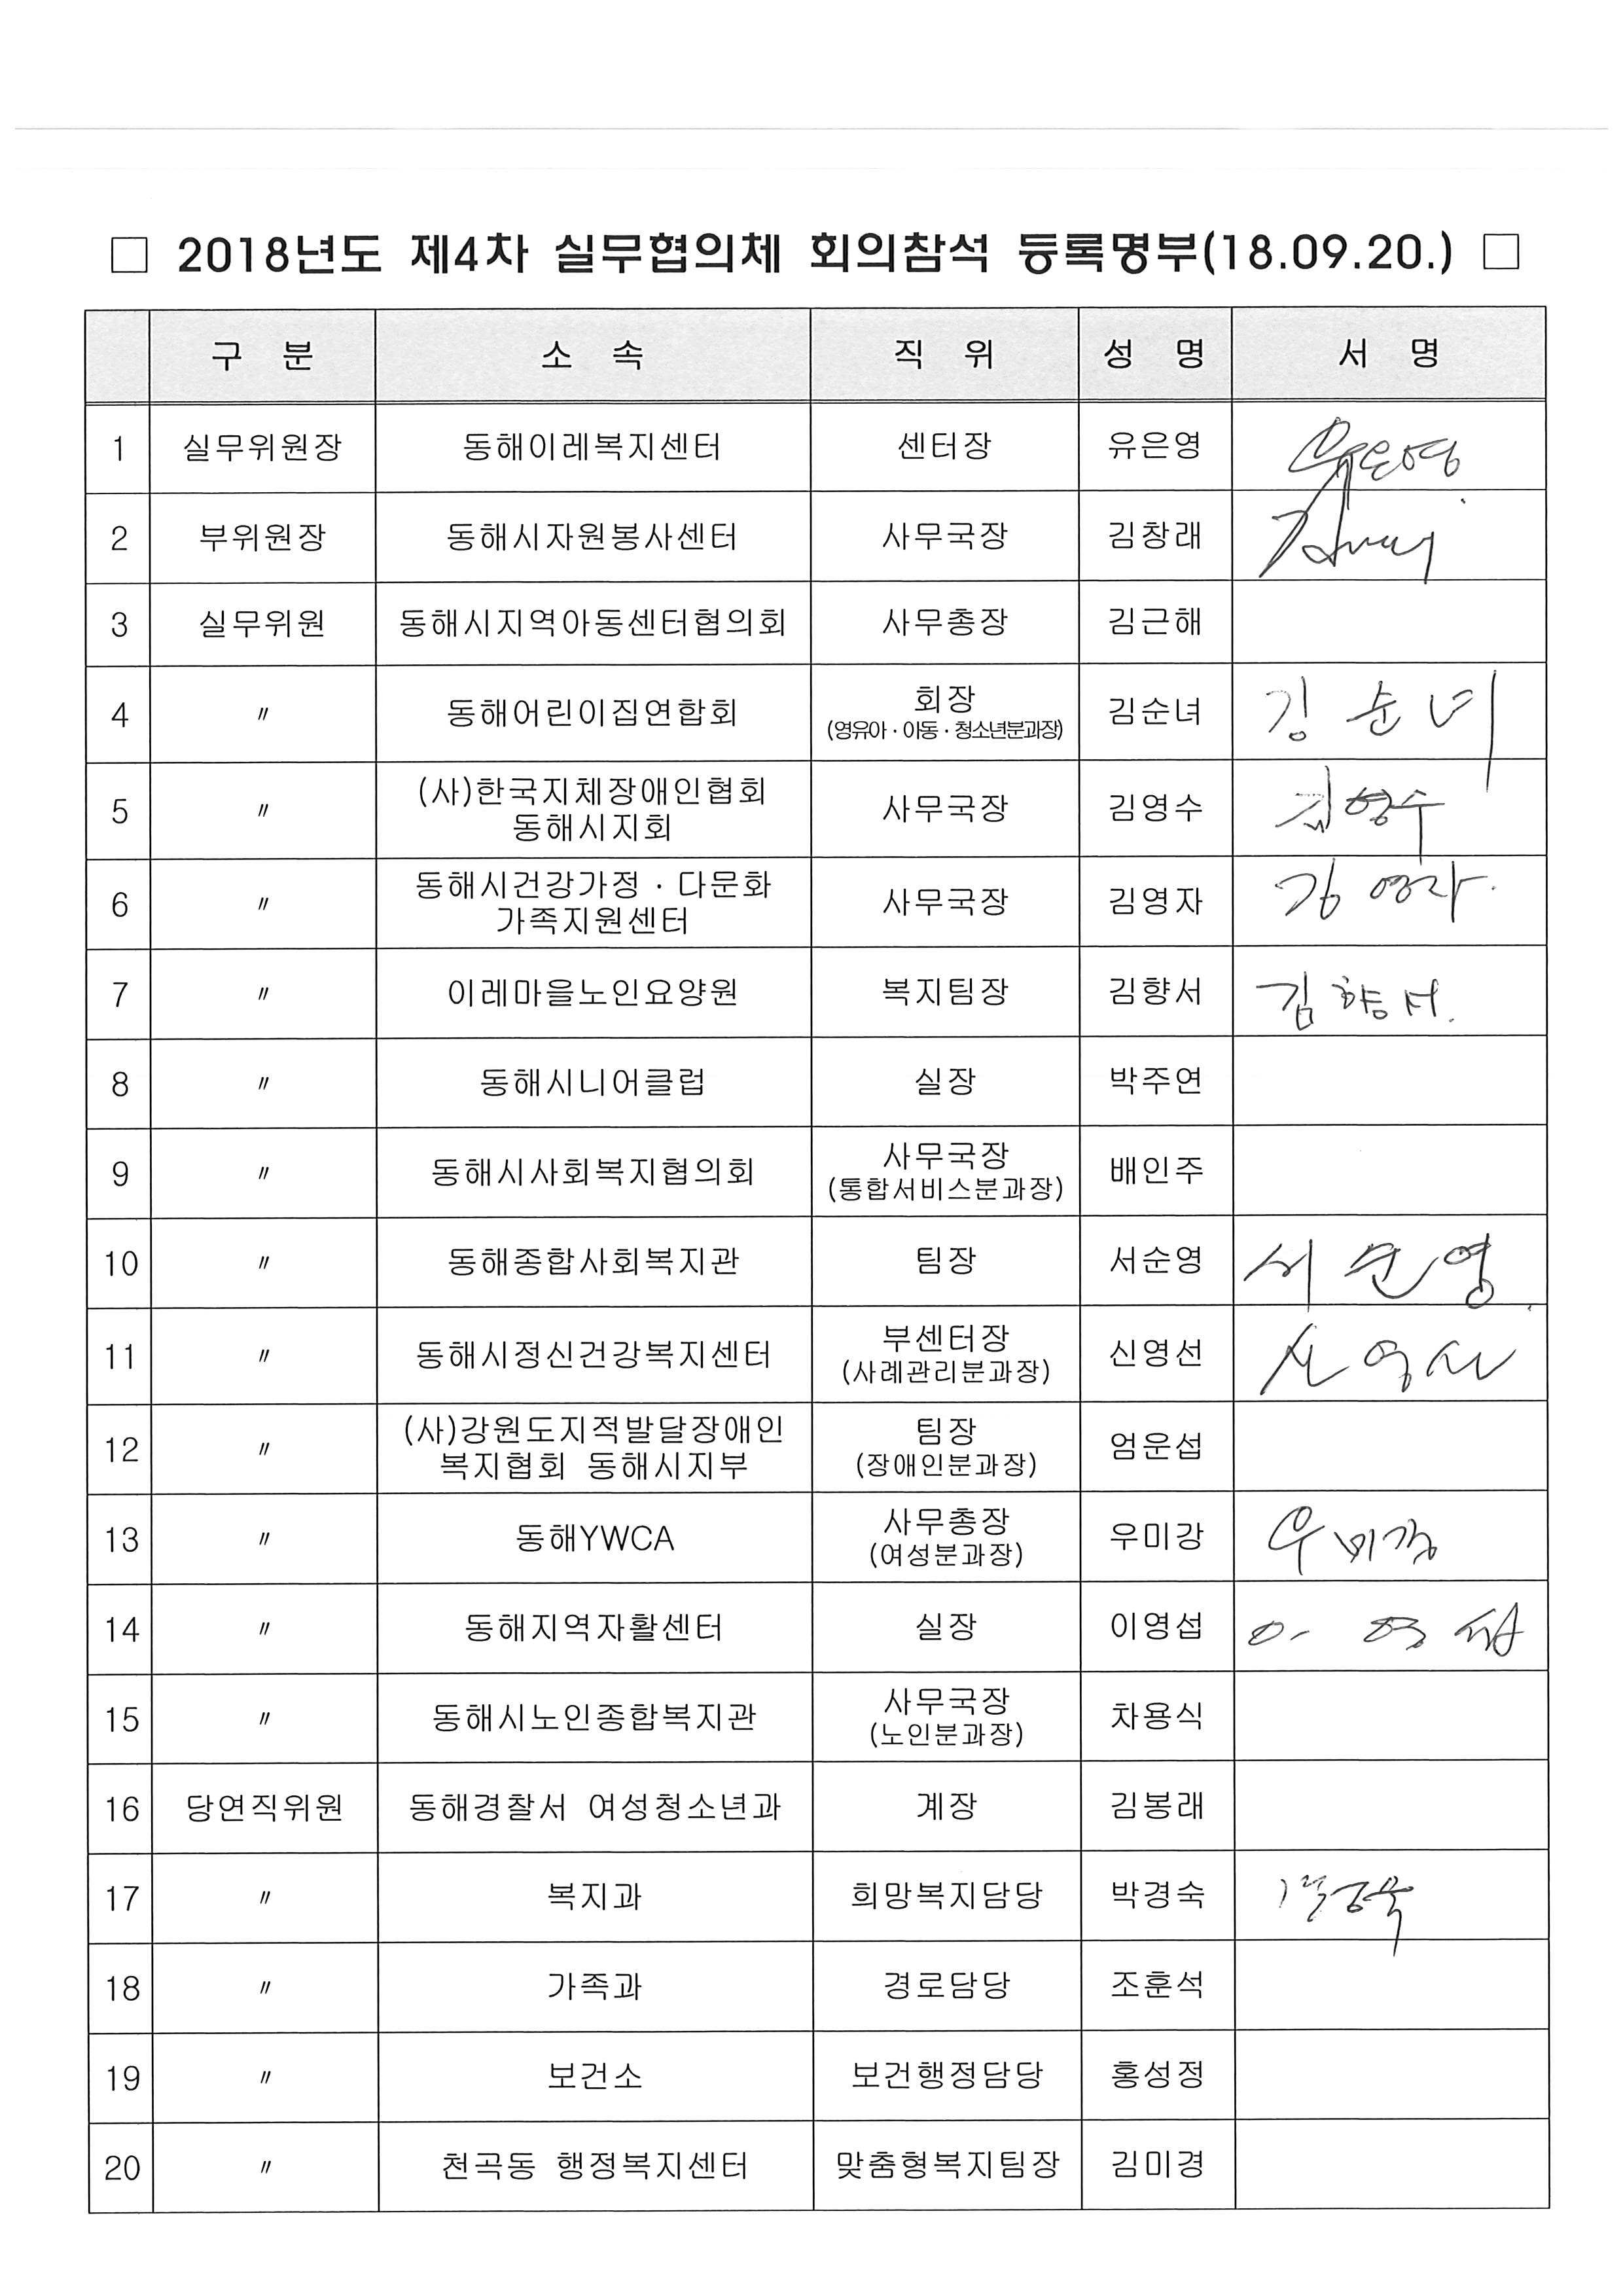 □ 2018년도 제4차 실무협의체 회의참석 등록명부(18.09.20.) □
구 분 소 속 직 위 성 명 서 명
1 실무위원장 동해이레복지센터 센터장 유은영 유은영
2 부위원장 동해시자원봉사센터 사무국장 김창래
3 실무위원 동해시지역아동센터협의회 사무총장 김근해
4 〃 동해어린이집연합회 회장 김순녀 김순녀
(영유아·아동·청소년분과장)
5 〃 (사)한국지체장애인협회 사무국장 김영수 김영수
동해시지회
6 〃 동해시건강가정·다문화 사무국장 김영자 김영자
가족지원센터
7 〃 이레마을노인요양원 복지팀장 김향서 김향서
8 〃 동해시니어클럽 실장 박주연
9 〃 동해시사회복지협의회 사무국장 배인주
(통합서비스분과장)
10 〃 동해종합사회복지관 팀장 서순영 서순영
11 〃 동해시정신건강복지센터 부센터장 신영선 신영선
(사례관리분과장)
12 〃 (사)강원도지적발달장애인 팀장 엄운섭
복지협회 동해시지부 (장애인분과장)
13 〃 동해YWCA 사무총장 우미강 우미강
(여성분과장)
14 〃 동해지역자활센터 실장 이영섭 이영섭
15 〃 동해시노인종합복지관 사무국장 차용식
(노인분과장)
16 당연직위원 동해경찰서 여성청소년과 계장 김봉래
17 〃 복지과 희망복지담당 박경숙 박경숙
18 〃 가족과 경로담당 조훈석
19 〃 보건소 보건행정담당 홍성정
20 〃 천곡동 행정복지센터 맞춤형복지팀장 김미경